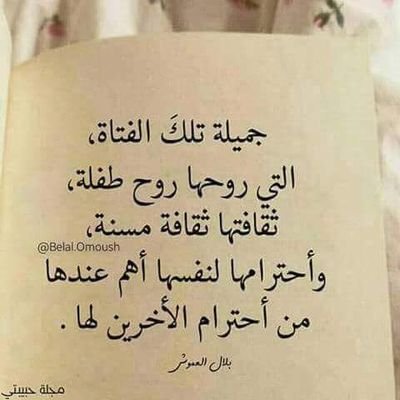 جميلة تلكَ الفتاة،
التي روحها روح طفلة،
ثقافتها ثقافة مسنة،
@Belal.Omoush
وأحترامها لنفسها أهم عندها
من أحترام الأخرين لها .
بلال العموش
مجلة حبيبتي